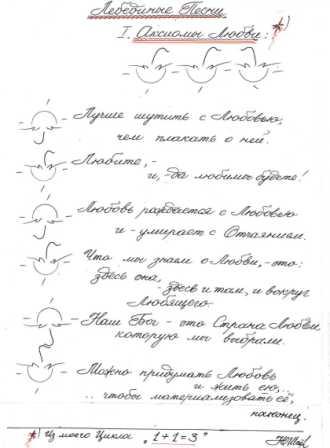 Лебединые Песни *)
I. Аксиомы Любви:
Лучше шутить с Любовью,
чем плакать о ней.
Любите, –
и, – да любимы будете!
Любовь рождается с Любовью
и – умирает с Отчаянием.
Что мы знаем о Любви, – это:
здесь она,
здесь и там, и вокруг
Любящего.
– Наш Бог – это Страна Любви,
которую мы выбрали.
Можно придумать Любовь
и жить ею,..
.. чтобы материализовать её,
наконец.
*) Из моего Цикла „1+1=3"